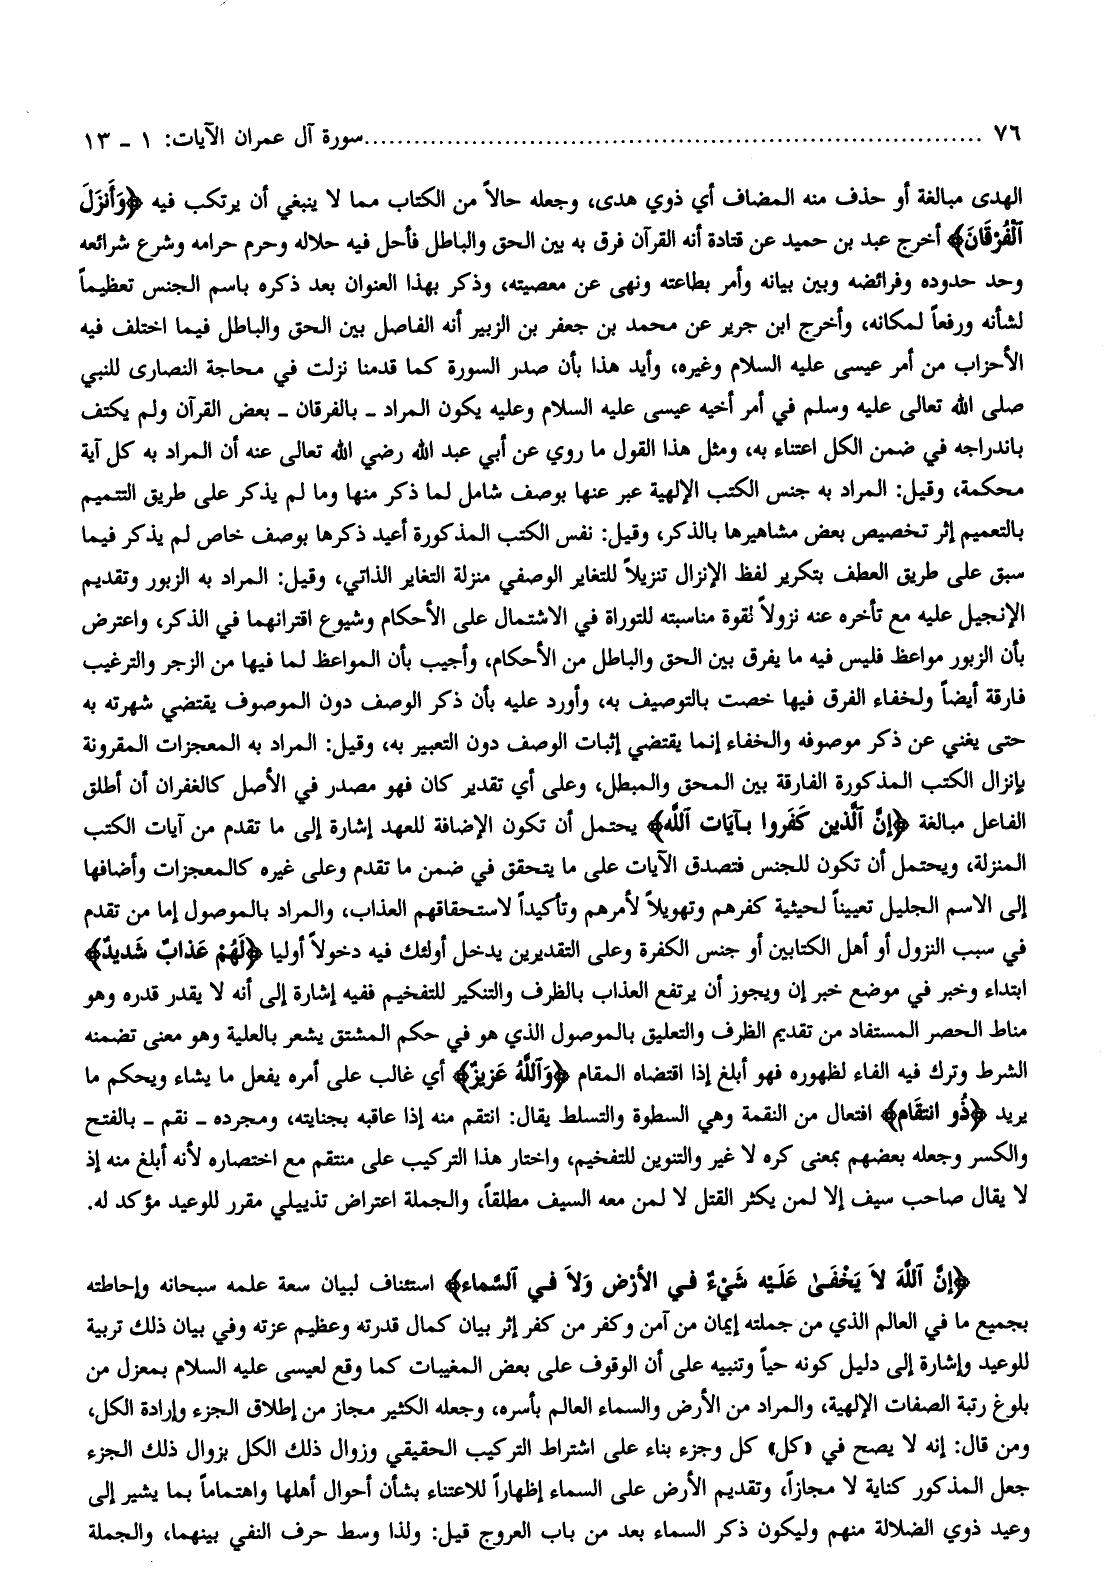 ٧٦ ..................................................سورة آل عمران الآيات: ١ ـ ١٣
الهدى مبالغة أو حذف منه المضاف أي ذوي هدى، وجعله حالاً من الكتاب مما لا ينبغي أن يرتكب فيه ﴿وَأَنزَلَ
ٱلْفُرْقَانَ﴾ أخرج عبد بن حميد عن قتادة أنه القرآن فرق به بين الحق والباطل فأحل فيه حلاله وحرم حرامه وشرع شرائعه
وحد حدوده وفرائضه وبين بيانه وأمر بطاعته ونهى عن معصيته، وذكر بهذا العنوان بعد ذكره باسم الجنس تعظيماً
لشأنه ورفعاً لمكانه، وأخرج ابن جرير عن محمد بن جعفر بن الزبير أنه الفاصل بين الحق والباطل فيما اختلف فيه
الأحزاب من أمر عيسى عليه السلام وغيره، وأيد هذا بأن صدر السورة كما قدمنا نزلت في محاجة النصارى للنبي
صلى الله تعالى عليه وسلم في أمر أخيه عيسى عليه السلام وعليه يكون المراد ـ بالفرقان ـ بعض القرآن ولم يكتف
باندراجه في ضمن الكل اعتناء به، ومثل هذا القول ما روي عن أبي عبد الله رضي الله تعالى عنه أن المراد به كل آية
محكمة، وقيل: المراد به جنس الكتب الإلهية عبر عنها بوصف شامل لما ذكر منها وما لم يذكر على طريق التتميم
بالتعميم إثر تخصيص بعض مشاهيرها بالذكر، وقيل: نفس الكتب المذكورة أعيد ذكرها بوصف خاص لم يذكر فيما
سبق على طريق العطف بتكرير لفظ الإنزال تنزيلاً للتغاير الوصفي منزلة التغاير الذاتي، وقيل: المراد به الزبور وتقديم
الإنجيل عليه مع تأخره عنه نزولاً لقوة مناسبته للتوراة في الاشتمال على الأحكام وشيوع اقترانهما في الذكر، واعترض
بأن الزبور مواعظ فليس فيه ما يفرق بين الحق والباطل من الأحكام، وأجيب بأن المواعظ لما فيها من الزجر والترغيب
فارقة أيضاً ولخفاء الفرق فيها خصت بالتوصيف به، وأورد عليه بأن ذكر الوصف دون الموصوف يقتضي شهرته به
حتى يغني عن ذكر موصوفه والخفاء إنما يقتضي إثبات الوصف دون التعبير به، وقيل: المراد به المعجزات المقرونة
بإنزال الكتب المذكورة الفارقة بين المحق والمبطل، وعلى أي تقدير كان فهو مصدر في الأصل كالغفران أن أطلق
الفاعل مبالغة ﴿إنَّ ٱلَّذين كَفَروا بـآيَات ٱللَّه﴾ يحتمل أن تكون الإضافة للعهد إشارة إلى ما تقدم من آيات الكتب
المنزلة، ويحتمل أن تكون للجنس فتصدق الآيات على ما يتحقق في ضمن ما تقدم وعلى غيره كالمعجزات وأضافها
إلى الاسم الجليل تعييناً لحيثية كفرهم وتهويلاً لأمرهم وتأكيداً لاستحقاقهم العذاب، والمراد بالموصول إما من تقدم
في سبب النزول أو أهل الكتابين أو جنس الكفرة وعلى التقديرين يدخل أولئك فيه دخولاً أوليا ﴿لَهُمْ عَذابٌ شَديدٌ﴾
ابتداء وخبر في موضع خبر إن ويجوز أن يرتفع العذاب بالظرف والتنكير للتفخيم ففيه إشارة إلى أنه لا يقدر قدره وهو
مناط الحصر المستفاد من تقديم الظرف والتعليق بالموصول الذي هو في حكم المشتق يشعر بالعلية وهو معنى تضمنه
الشرط وترك فيه الفاء لظهوره فهو أبلغ إذا اقتضاه المقام ﴿وَٱللَّهُ عَزيزٌ﴾ أي غالب على أمره يفعل ما يشاء ويحكم ما
يريد ﴿ذُو انتقَام﴾ افتعال من النقمة وهي السطوة والتسلط يقال: انتقم منه إذا عاقبه بجنايته، ومجرده ـ نقم ـ بالفتح
والكسر وجعله بعضهم بمعنى كره لا غير والتنوين للتفخيم، واختار هذا التركيب على منتقم مع اختصاره لأنه أبلغ منه إذ
لا يقال صاحب سيف إلا لمن يكثر القتل لا لمن معه السيف مطلقاً، والجملة اعتراض تذييلي مقرر للوعيد مؤكد له.
﴿إنَّ ٱللَّهَ لاَ يَخْفَىٰ عَلَيْه شَيْءٌ فـي الأَرْض وَلاَ فـي ٱلسَّماء﴾ استئناف لبيان سعة علمه سبحانه وإحاطته
بجميع ما في العالم الذي من جملته إيمان من آمن وكفر من كفر إثر بيان كمال قدرته وعظيم عزته وفي بيان ذلك تربية
للوعيد وإشارة إلى دليل كونه حياً وتنبيه على أن الوقوف على بعض المغيبات كما وقع لعيسى عليه السلام بمعزل من
بلوغ رتبة الصفات الإلهية، والمراد من الأرض والسماء العالم بأسره، وجعله الكثير مجاز من إطلاق الجزء وإرادة الكل،
ومن قال: إنه لا يصح في «كل» كل وجزء بناء على اشتراط التركيب الحقيقي وزوال ذلك الكل بزوال ذلك الجزء
جعل المذكور كناية لا مجازاً، وتقديم الأرض على السماء إظهاراً للاعتناء بشأن أحوال أهلها واهتماماً بما يشير إلى
وعيد ذوي الضلالة منهم وليكون ذكر السماء بعد من باب العروج قيل: ولذا وسط حرف النفي بينهما، والجملة